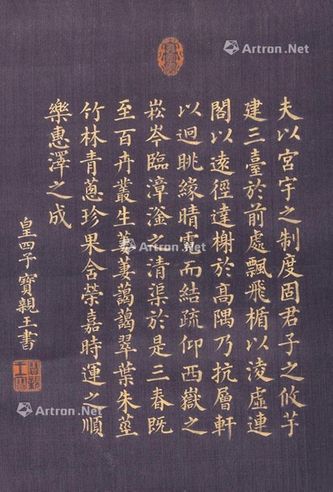 夫以宮宇之制度固君子之攸芋
建三臺於前處飄飛楯以淩虛連
閣以遠徑達榭於高隅乃抗層軒
以迥眺緣晴雲而結疏仰西嶽之
崧岑臨漳滏之清渠於是三春既
至百卉叢生萋萋藹藹翠葉朱莖
竹林青蔥珍果含榮嘉時運之順
樂惠澤之成
皇四子寶親王書
Artron.Net
Artron.Net
Artron.Net
Artron.Net
Artron.Net